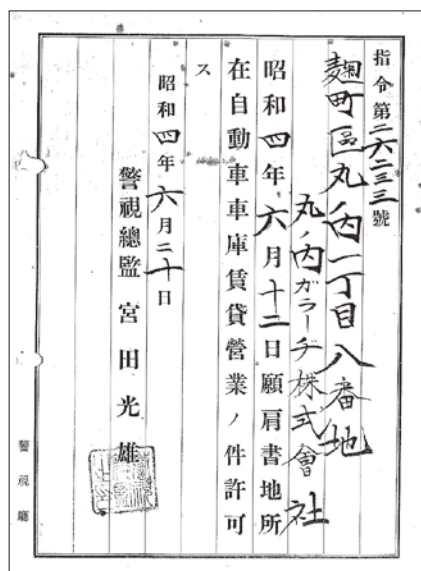 指令第二六二三三號
麴町區丸ノ内一丁目八番地
丸ノ内ガラーヂ株式會社
昭和四年六月十二日願肩書地所
在自動車車庫賃貸營業ノ件許可
ス
昭和四年六月二十日
警視總監宮田光雄
警視廳